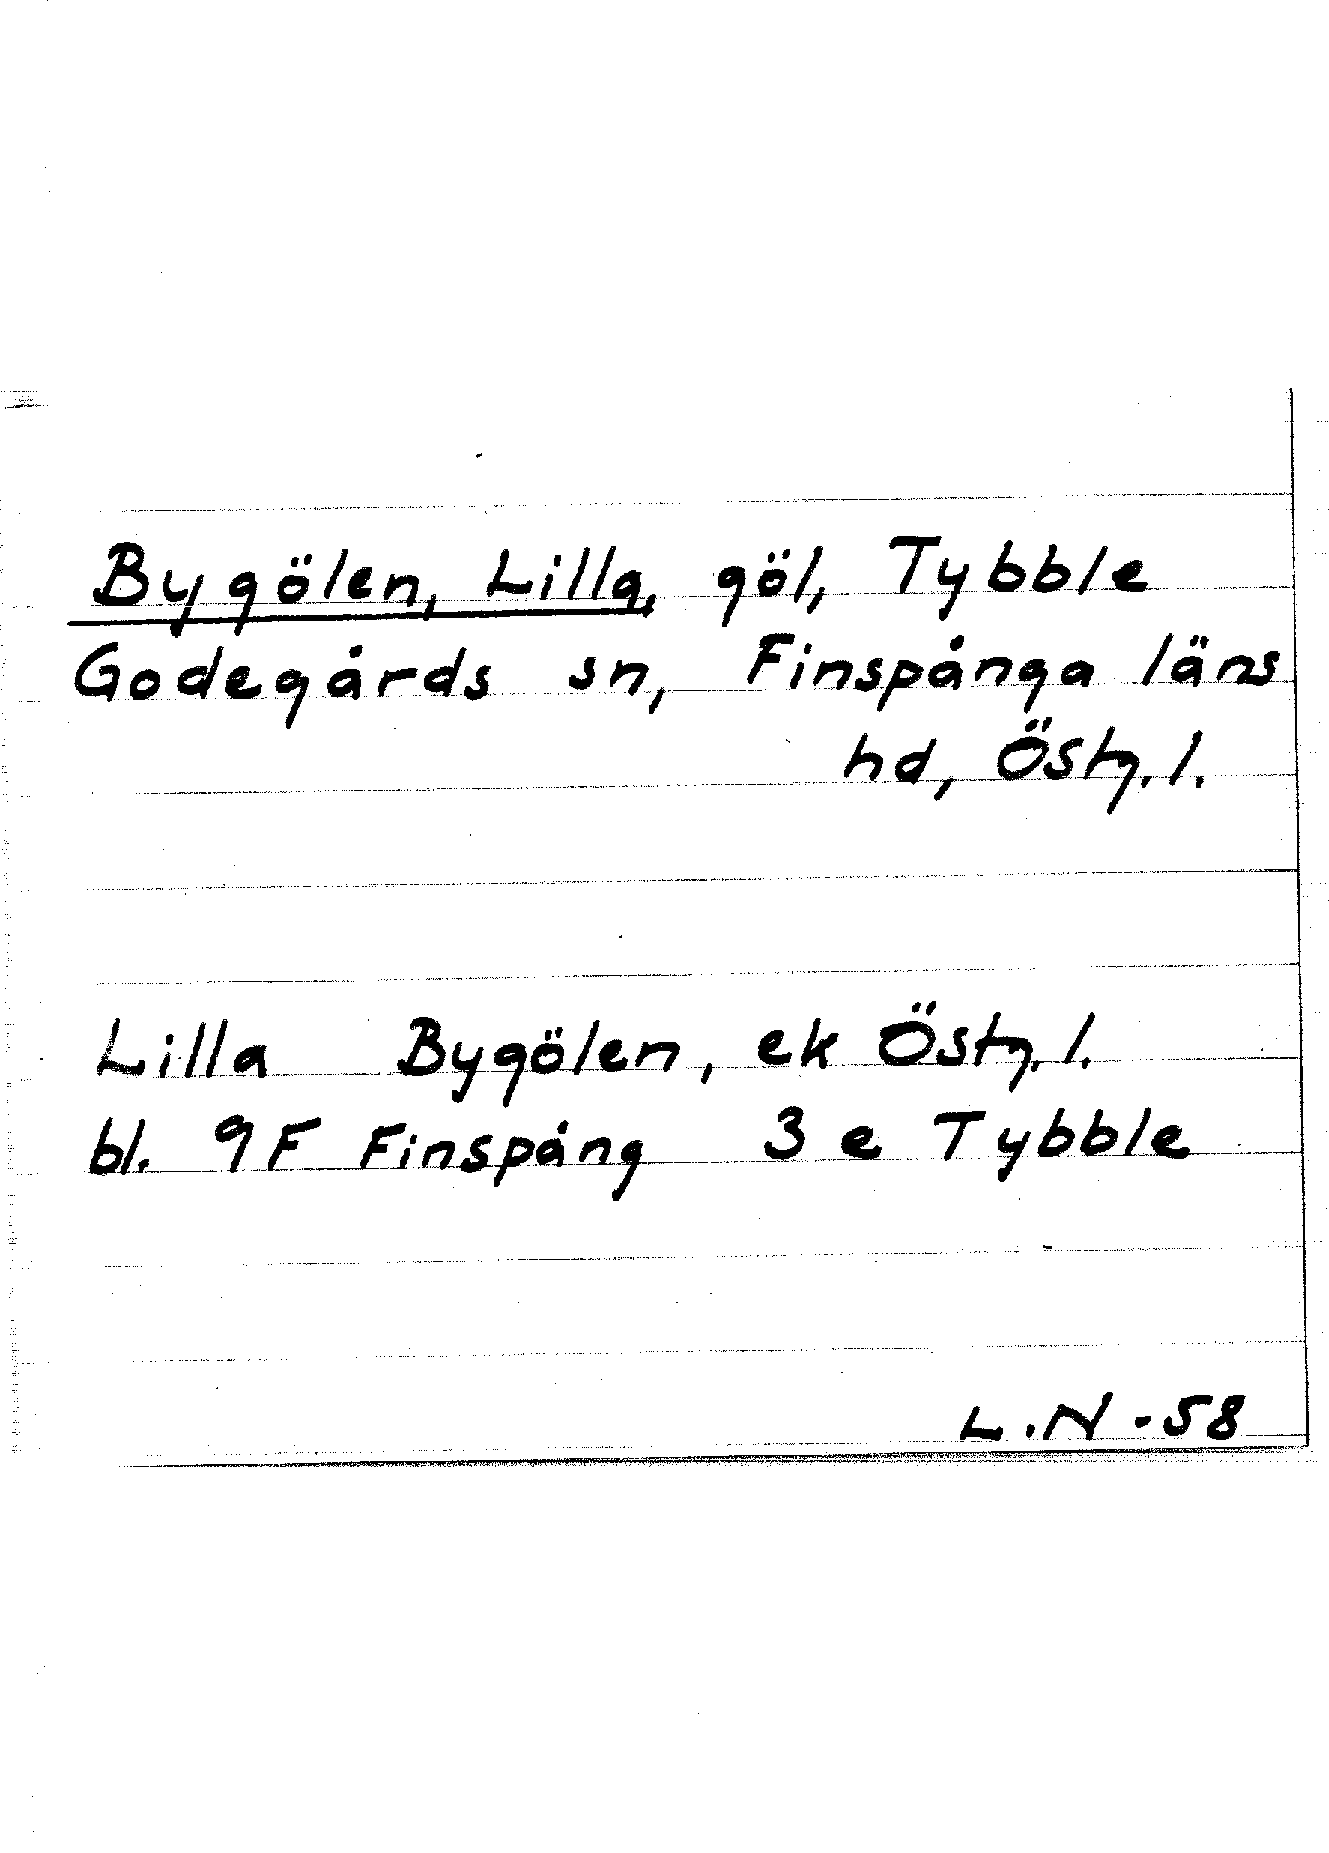 Bygölen, Lilla, göl, Tybble
Godegårds sn, Finspånga läns
hd, Östg. l.
Lilla Bygölen, ek Östg. l.
bl. 9F Finspång 3 e Tybble
L.N -58